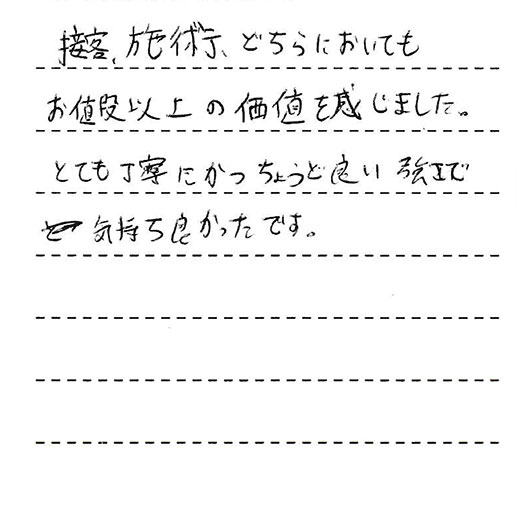 接客、施術、どちらにおいても
お値段以上の価値を感じました。
とても丁寧にかつちょうど良い強さで
気持ち良かったです。